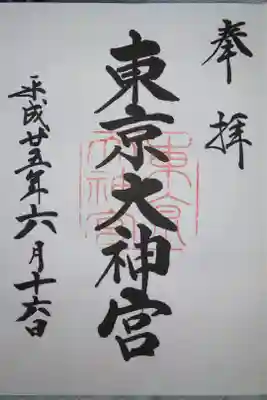 奉拝
東京大神宮
平成廿五年六月十六日